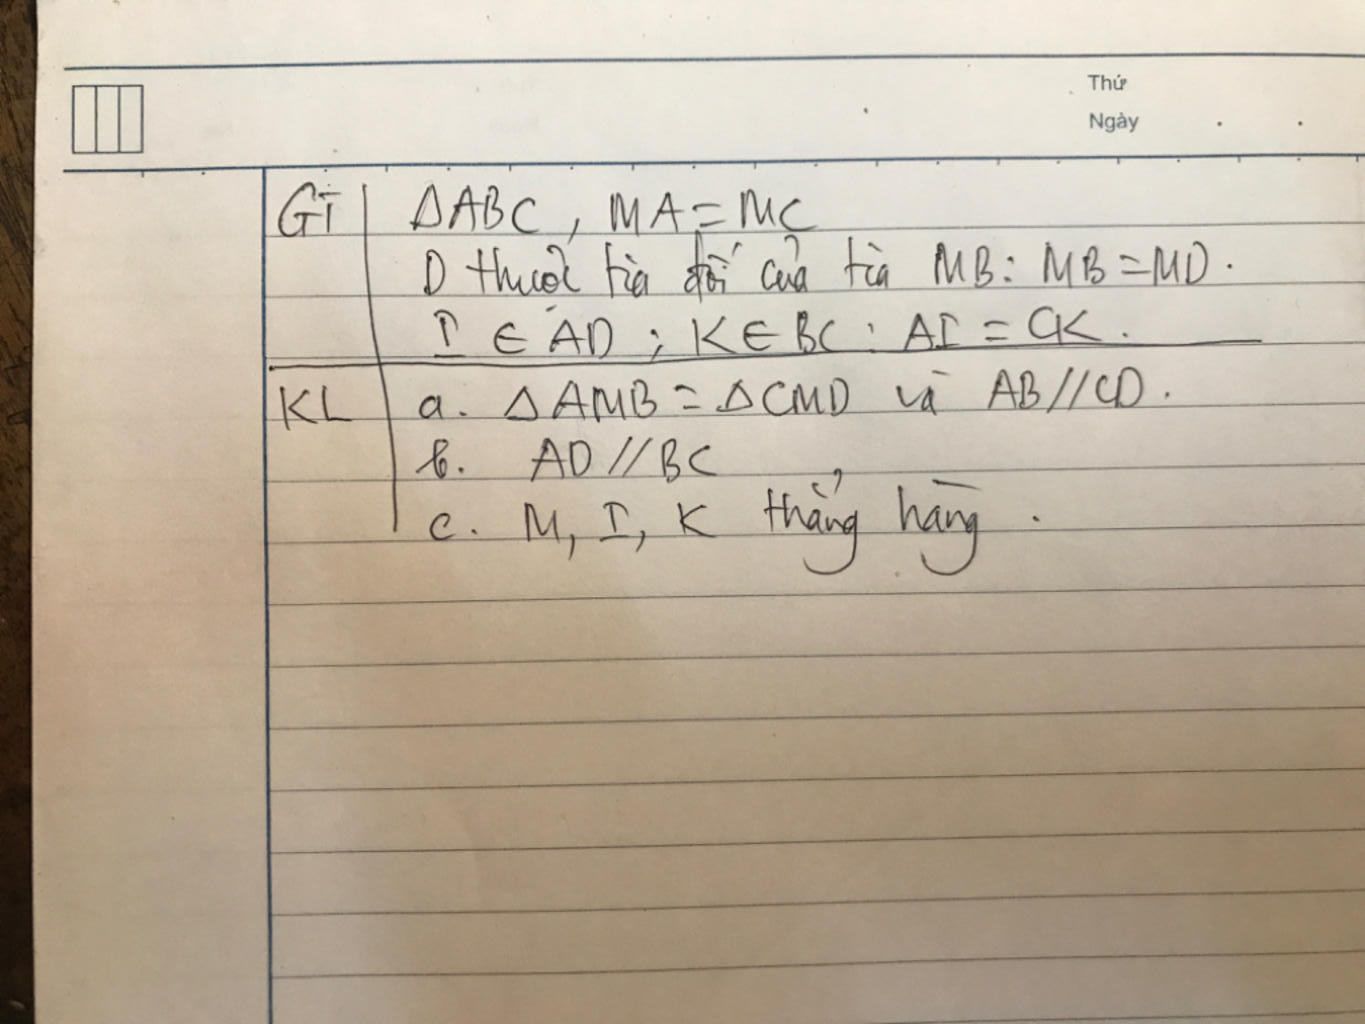 Thứ
Ngày
GT ΔABC, MA = MC
D thuộc tia đối của tia MB: MB = MD.
I ∈ AD; K ∈ BC: AI = CK.
KL a. ΔAMB = ΔCMD và AB // CD.
b. AD // BC
c. M, I, K thẳng hàng.